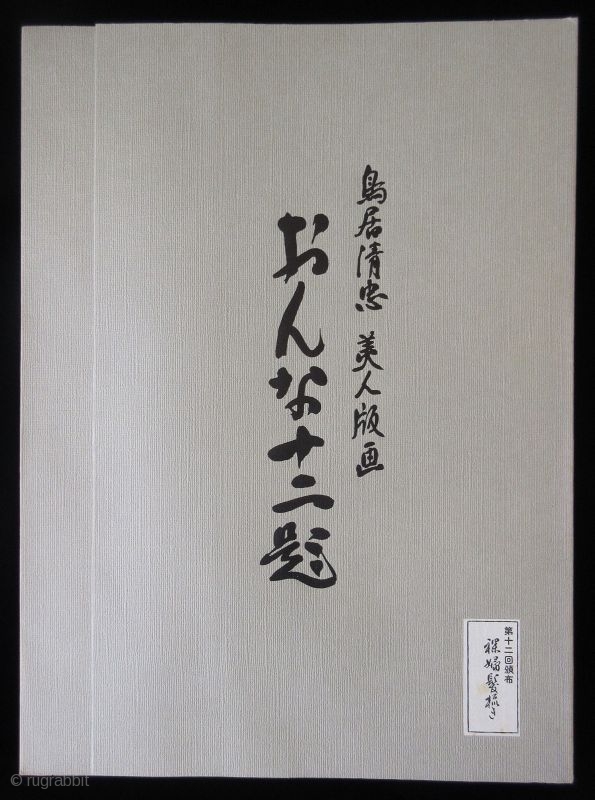 鳥居清忠 美人版画
おんな十二題
第十二回頒布
裸婦髪梳き
© rugrabbit